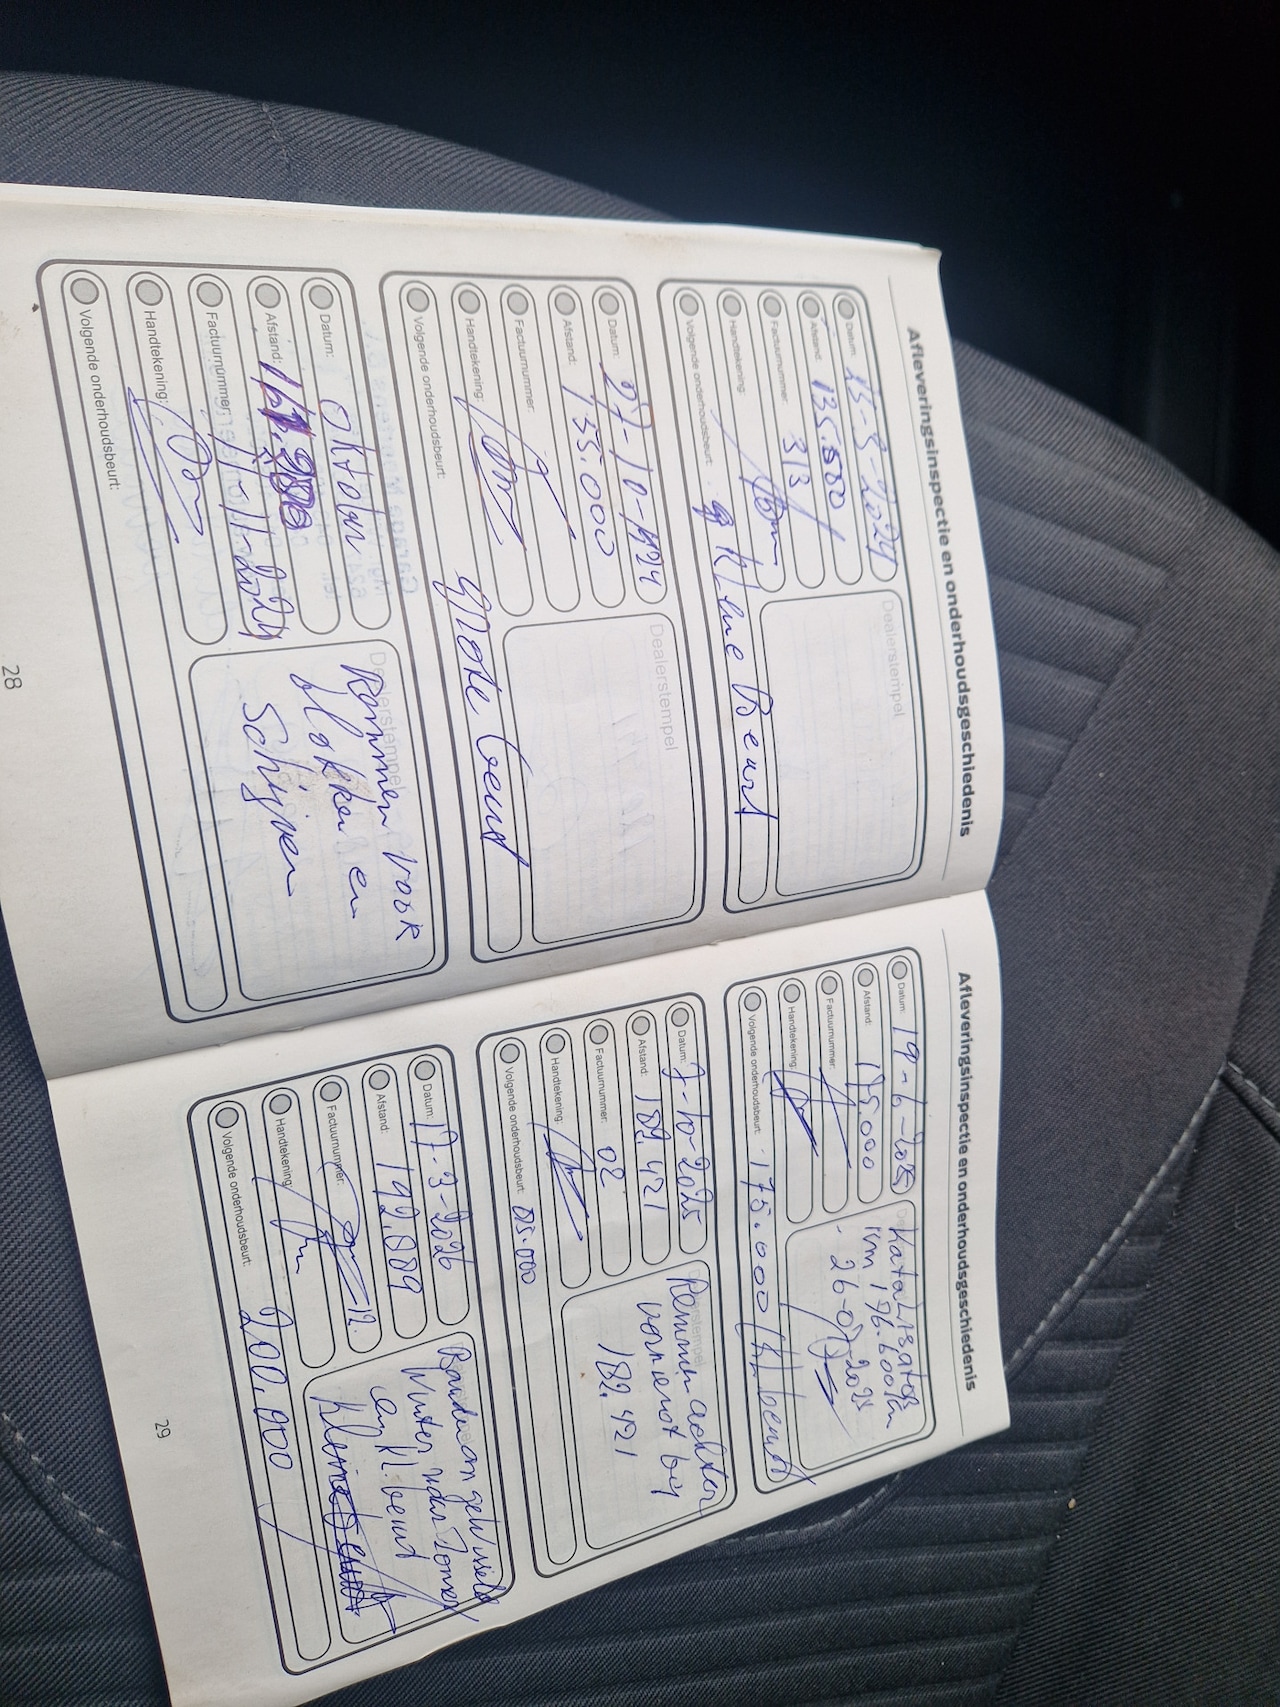 Afleveringsinspectie en onderhoudsgeschiedenis
Datum: 23-5-2024
Afstand: 135.500
Factuurnummer: 313
Handtekening:
Volgende onderhoudsbeurt: Kleine Beurt
Dealerstempel
Datum: 27-10-
Afstand: 155.000
Factuurnummer:
Handtekening:
Volgende onderhoudsbeurt: grote beurt
Dealerstempel
Datum: Oktober
Afstand:
Factuurnummer: 1-11-2024
Handtekening:
Volgende onderhoudsbeurt:
Dealerstempel
Remmen voor
blokken en
Schijven
28
Afleveringsinspectie en onderhoudsgeschiedenis
Datum: 19-6-2025
Afstand: 175.000
Factuurnummer:
Handtekening:
Volgende onderhoudsbeurt: 175.000 kl beurt
Katalisator
km 176.600 km
26-07-2025
Datum: 7-10-2025
Afstand: 182.421
Factuurnummer: 02
Handtekening:
Volgende onderhoudsbeurt: 05.000
Remmen achter
vernieuwt bij
182.421
Datum: 17-3-2026
Afstand: 192.889
Factuurnummer:
Handtekening:
Volgende onderhoudsbeurt: 200.000
Banden gewisseld
Winter naar Zomer
en kl. beurt
29